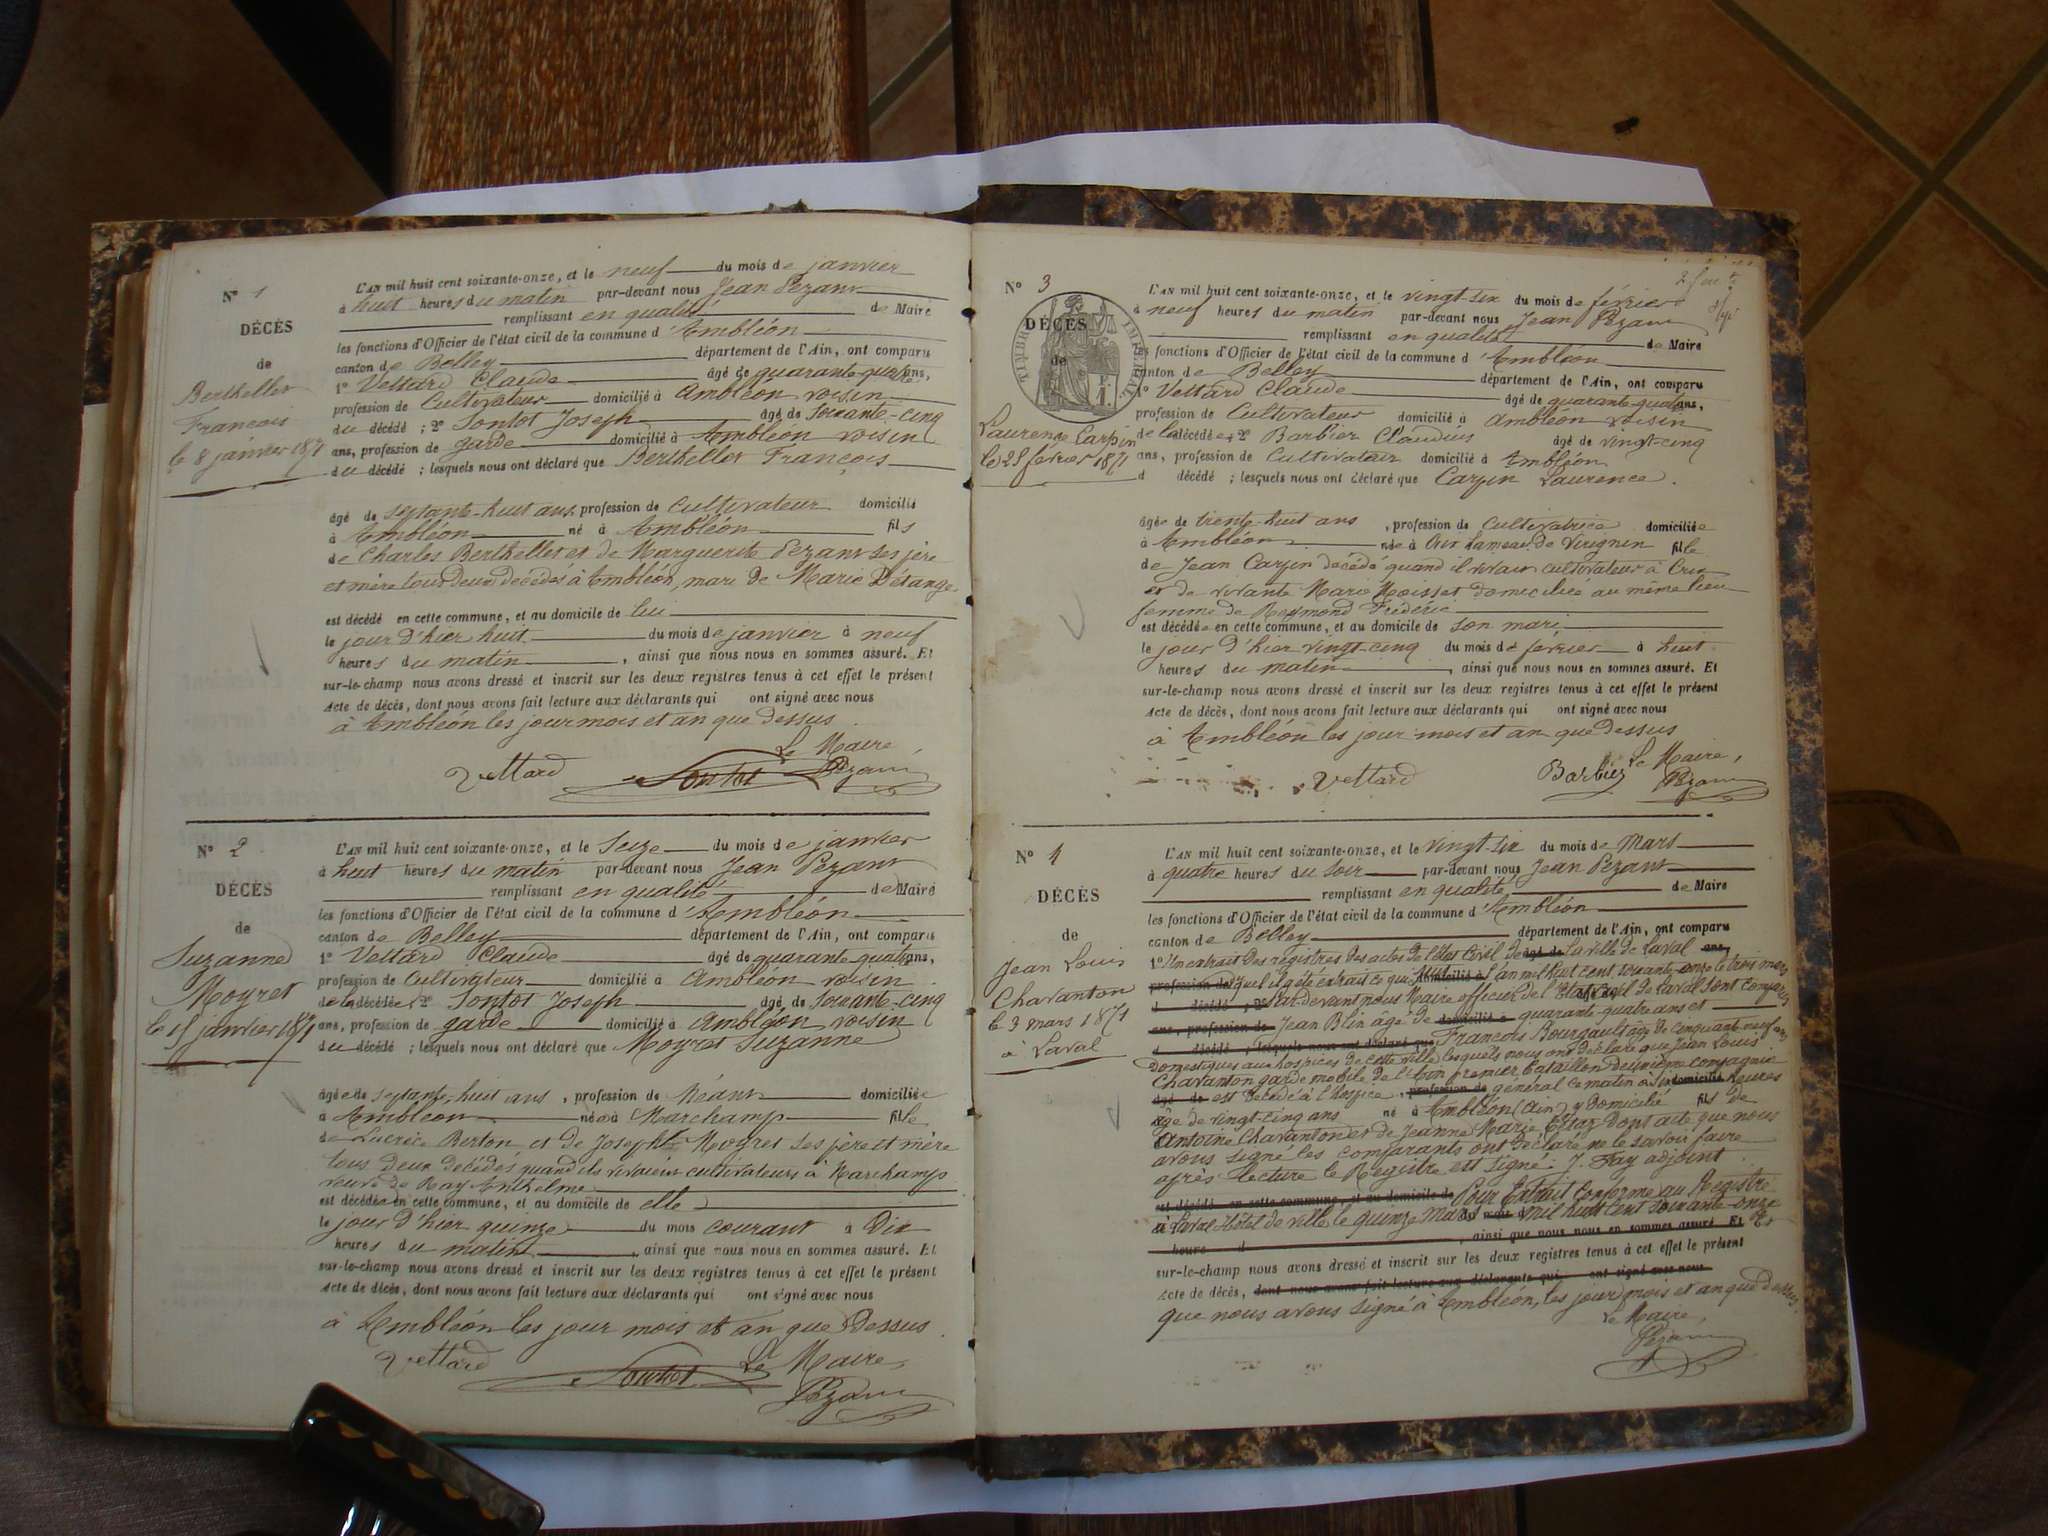 N° 1
DÉCÈS
de
Berthellet
François
le 8 janvier 1871
L'AN mil huit cent soixante-onze, et le neuf du mois de janvier
à huit heures du matin par-devant nous Jean Pezant
remplissant en qualité de Maire
les fonctions d'Officier de l'état civil de la commune d'Ambléon
canton de Belley département de l'Ain, ont comparu
1° Vettard Claude âgé de quarante-quatre ans,
profession de Cultivateur domicilié à Ambléon voisin
du décédé ; 2° Sontot Joseph âgé de soixante-cinq
ans, profession de garde domicilié à Ambléon voisin
du décédé ; lesquels nous ont déclaré que Berthellet François
âgé de septante-huit ans, profession de Cultivateur domicilié
à Ambléon né à Ambléon fils
de Charles Berthellet et de Marguerite Pezant ses père
et mère tous deux décédés à Ambléon, mari de Marie Détange
est décédé en cette commune, et au domicile de lui
le jour d'hier huit du mois de janvier à neuf
heures du matin, ainsi que nous nous en sommes assuré. Et
sur-le-champ nous avons dressé et inscrit sur les deux registres tenus à cet effet le présent
Acte de décès, dont nous avons fait lecture aux déclarants qui ont signé avec nous
à Ambléon les jour mois et an que dessus
Le Maire,
Vettard Sontot Pezant
N° 2
DÉCÈS
de
Suzanne
Moyret
le 15 janvier 1871
L'AN mil huit cent soixante-onze, et le Seize du mois de janvier
à huit heures du matin par-devant nous Jean Pezant
remplissant en qualité de Maire
les fonctions d'Officier de l'état civil de la commune d'Ambléon
canton de Belley département de l'Ain, ont comparu
1° Vettard Claude âgé de quarante quatre ans,
profession de Cultivateur domicilié à Ambléon voisin
de la décédée ; 2° Sontot Joseph âgé de soixante-cinq
ans, profession de garde domicilié à Ambléon voisin
du décédé ; lesquels nous ont déclaré que Moyret Suzanne
âgée de septante-huit ans, profession de Néant domiciliée
à Ambléon née à Marchamp fille
de Lucrèce Berton et de Joseph Moyret ses père et mère
tous deux décédés quand ils vivaient cultivateurs à Marchamp
veuve de Ray Anthelme
est décédée en cette commune, et au domicile de elle
le jour d'hier quinze du mois courant à Dix
heures du matin, ainsi que nous nous en sommes assuré. Et
sur-le-champ nous avons dressé et inscrit sur les deux registres tenus à cet effet le présent
Acte de décès, dont nous avons fait lecture aux déclarants qui ont signé avec nous
à Ambléon les jour mois et an que Dessus
Vettard Sontot Le Maire,
Pezant
N° 3
DÉCÈS
de
TIMBRE IMPERIAL
Laurence Carpin
le 25 février 1871
L'AN mil huit cent soixante-onze, et le vingt-six du mois de février
à neuf heures du matin par-devant nous Jean Pezant
remplissant en qualité de Maire
les fonctions d'Officier de l'état civil de la commune d'Ambléon
canton de Belley département de l'Ain, ont comparu
1° Vettard Claude âgé de quarante quatre ans,
profession de Cultivateur domicilié à Ambléon voisin
de la décédée ; 2° Barbier Claudius âgé de vingt-cinq
ans, profession de Cultivateur domicilié à Ambléon
d décédé ; lesquels nous ont déclaré que Carpin Laurence
âgée de trente-huit ans, profession de Cultivatrice domiciliée
à Ambléon née à hameau de Virignin fille
de Jean Carpin décédé quand il vivait cultivateur à
et de vivante Marie Moisset domiciliée au même lieu
femme de Reymond Frédéric
est décédée en cette commune, et au domicile de son mari
le jour d'hier vingt-cinq du mois de février à huit
heures du matin, ainsi que nous nous en sommes assuré. Et
sur-le-champ nous avons dressé et inscrit sur les deux registres tenus à cet effet le présent
Acte de décès, dont nous avons fait lecture aux déclarants qui ont signé avec nous
à Ambléon les jour mois et an que dessus
Vettard Barbier Le Maire,
Pezant
N° 4
DÉCÈS
de
Jean Louis
Chavanton
le 3 mars 1871
à Laval
L'AN mil huit cent soixante-onze, et le vingt-six du mois de Mars
à quatre heures du soir par-devant nous Jean Pezant
remplissant en qualité de Maire
les fonctions d'Officier de l'état civil de la commune d'Ambléon
canton de Belley département de l'Ain, ont comparu
1° Un extrait des registres des actes de l'état civil de âgé de la ville de Laval ans,
profession de duquel il a été extrait ce qui suit domicilié à L'an mil huit cent soixante-onze le trois mars
d décédé ; 2° Pardevant nous Maire officier de l'état civil de Laval sont comparus
ans, profession de Jean Blin âgé de domicilié à quarante quatre ans et
d décédé ; lesquels nous ont déclaré que François Bourgault âgé de cinquante neuf ans
Domestiques aux hospices de cette ville lesquels nous ont déclaré que Jean Louis
Chavanton garde mobile de l'Ain premier bataillon deuxième compagnie
âgé de est décédé à l'hospice, profession de général ce matin à six domicilié heures
âgé de vingt-cinq ans né à Ambléon (Ain) y domicilié fils de
Antoine Chavanton et de Jeanne Marie Dont acte que nous
avons signé les comparants ont déclaré ne le savoir faire
après lecture le Registre est signé : J. Fay adjoint
est décédé en cette commune, et au domicile de Pour Extrait conforme au Registre
à Laval Hôtel de ville le quinze Mars du mois d mil huit cent soixante-onze
heure d, ainsi que nous nous en sommes assuré. Et Et
sur-le-champ nous avons dressé et inscrit sur les deux registres tenus à cet effet le présent
Acte de décès, dont nous avons fait lecture aux déclarants qui ont signé avec nous
que nous avons signé à Ambléon, les jour mois et an que dessus.
Le Maire,
Pezant